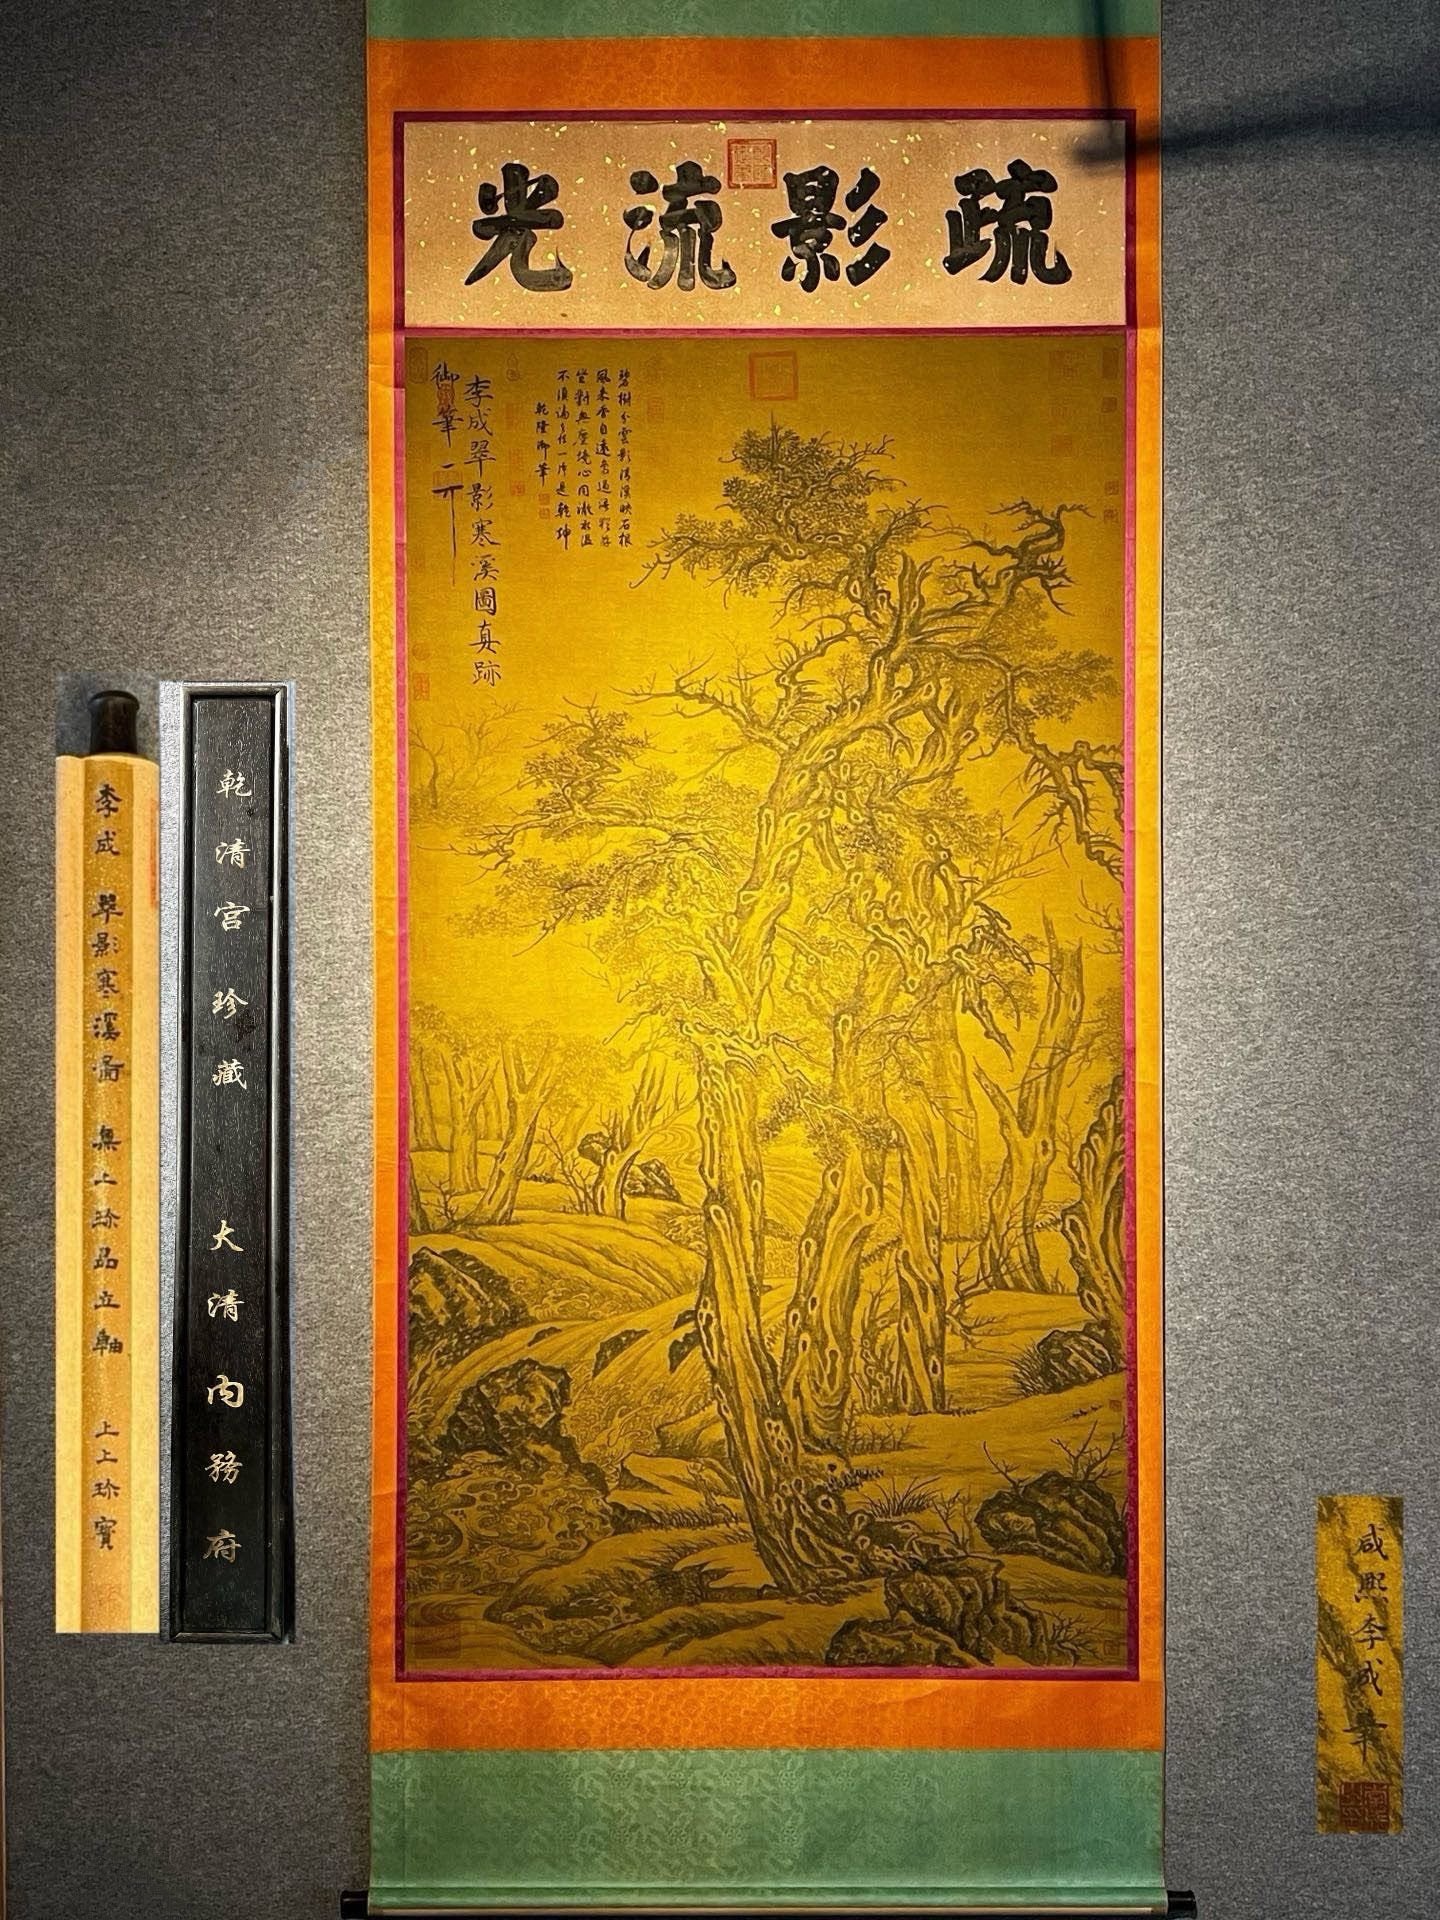 疏影流光
碧樹分雲影清溪映石根
風來香自遠
坐對無塵境心同澈水溫
不須論多佳一片是乾坤
乾隆御筆
李成翠影寒溪圖真跡
御筆
李成 翠影寒溪圖 無上珍品立軸 上上珍寶
乾清宫珍藏 大清内務府
咸熙李成筆